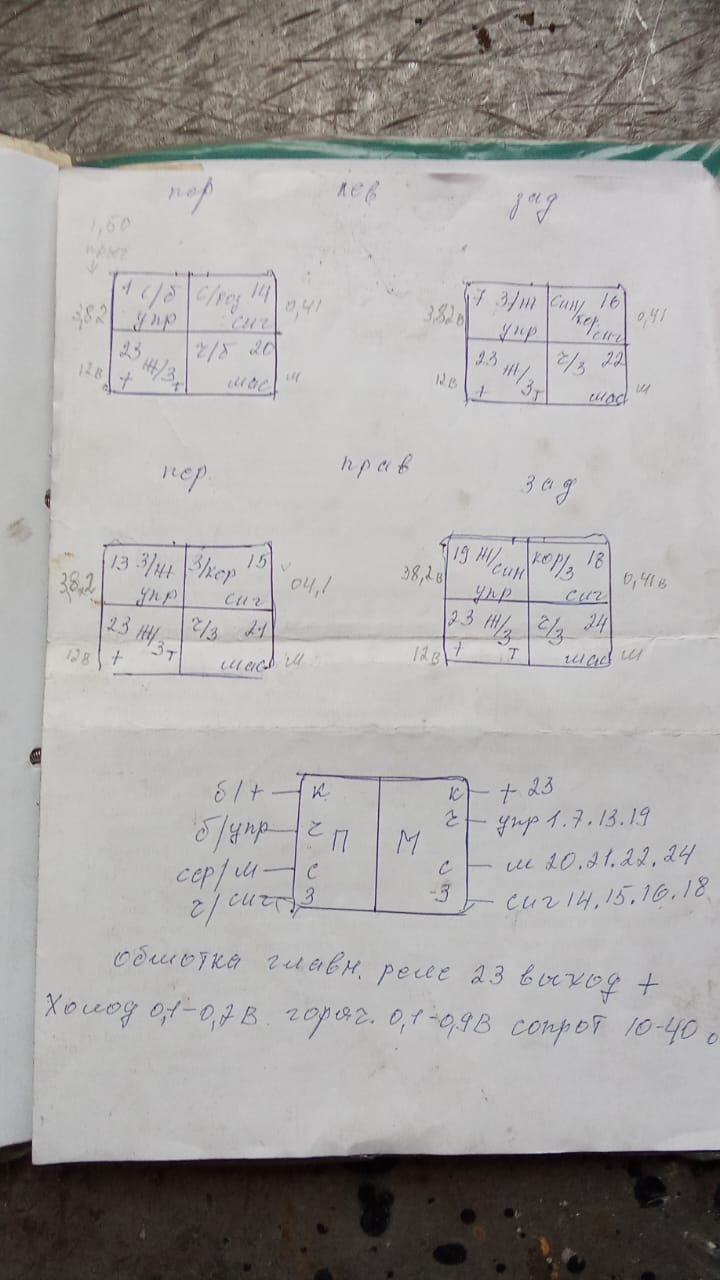 пер лев зад
1,60
3,82 1 с/б упр с/роз 14 сиг 0,41
12в 23 ж/з + т ч/б 20 мас м
3,82в 7 з/ж упр син/кор 16 сиг 0,41
12в 23 ж/з + т ч/з 22 мас м
пер. прав зад
3,8,2 13 з/ж упр з/кор 15 сиг 04,1
12в 23 ж/з + т ч/з 21 мас м
38,2в 19 ж/син упр кор/з 18 сиг 0,41в
12в 23 ж/з + т ч/з 24 мас м
б/+ к П М к + 23
б/упр ч ч упр 1.7.13.19
сер/м с с м 20.21.22.24
ч/сиг З З сиг 14.15.16.18
обмотка главн. реле 23 выход +
Холод 0,1-0,7в горяч. 0,1-0,9В сопрот 10-40 о